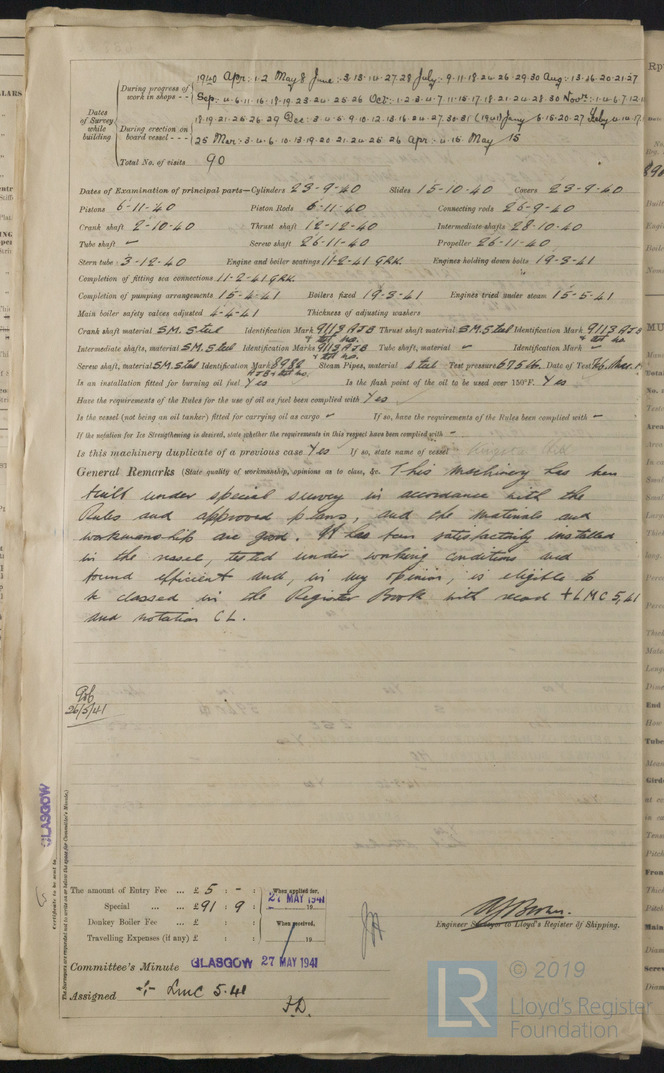 1940 Apr: 1·2 May 8 June: 3·13·14·27·28 July: 9·11·18·24·26·29·30 Aug: 13·16·20·21·27
During progress of work in shops - -
Sep: 4·6·11·16·18·19·23·24·25·26 Oct: 1·2·3·4·7·11·15·17·18·21·24·28·30 Novr: 1·4·6·7·12·
Dates of Survey while building
18·19·21·25·26·29 Dec: 3·4·5·9·10·12·13·16·24·27·30·31 (1941) Jany 6·15·20·27 Feby 4·14·17·
During erection on board vessel - - -
25 Mar: 3·4·6·10·13·19·20·21·24·25·26 Apr: 4·15 May 15
Total No. of visits 90
Dates of Examination of principal parts—Cylinders 23-9-40 Slides 15-10-40 Covers 23-9-40
Pistons 6-11-40 Piston Rods 6-11-40 Connecting rods 26-9-40
Crank shaft 2-10-40 Thrust shaft 12-12-40 Intermediate shafts 28-10-40
Tube shaft — Screw shaft 26-11-40 Propeller 26-11-40
Stern tube 3-12-40 Engine and boiler seatings 11-2-41 GRK. Engines holding down bolts 19-3-41
Completion of fitting sea connections 11-2-41 GRK.
Completion of pumping arrangements 15-4-41 Boilers fixed 19-3-41 Engines tried under steam 15-5-41
Main boiler safety valves adjusted 4-4-41 Thickness of adjusting washers
Crank shaft material S.M. Steel Identification Mark 9113 AJB & tst no. Thrust shaft material S.M. Steel Identification Mark 9113 AJB & tst no.
Intermediate shafts, material S.M. Steel Identification Marks 9113 AJB & tst no. Tube shaft, material — Identification Mark —
Screw shaft, material S.M. Steel Identification Mark 8982 AJB & tst no. Steam Pipes, material steel Test pressure 675 lb. Date of Test Feb. Mar.
Is an installation fitted for burning oil fuel Yes Is the flash point of the oil to be used over 150°F. Yes
Have the requirements of the Rules for the use of oil as fuel been complied with Yes
Is the vessel (not being an oil tanker) fitted for carrying oil as cargo — If so, have the requirements of the Rules been complied with —
If the notation for Ice Strengthening is desired, state whether the requirements in this respect have been complied with —
Is this machinery duplicate of a previous case Yes If so, state name of vessel
General Remarks (State quality of workmanship, opinions as to class, &c. This machinery has been
built under special survey in accordance with the
Rules and approved plans, and the materials and
workmanship are good. It has been satisfactorily installed
in the vessel, tested under working conditions and
found efficient and, in my opinion, is eligible to
be classed in the Register Book with record +LMC 5,41
and notation CL.
26/5/41
GLASGOW
Certificate to be sent to
The Surveyors are requested not to write on or below the space for Committee's Minute.
The amount of Entry Fee ... £ 5 : - :
Special ... ... £ 91 : 9 :
Donkey Boiler Fee ... £ : :
Travelling Expenses (if any) £ : :
When applied for,
27 MAY 1941
19
When received,
19
AJ Brown.
Engineer Surveyor to Lloyd's Register of Shipping.
Committee's Minute GLASGOW 27 MAY 1941
Assigned + LMC 5.41
LR
© 2019
Lloyd's Register
Foundation